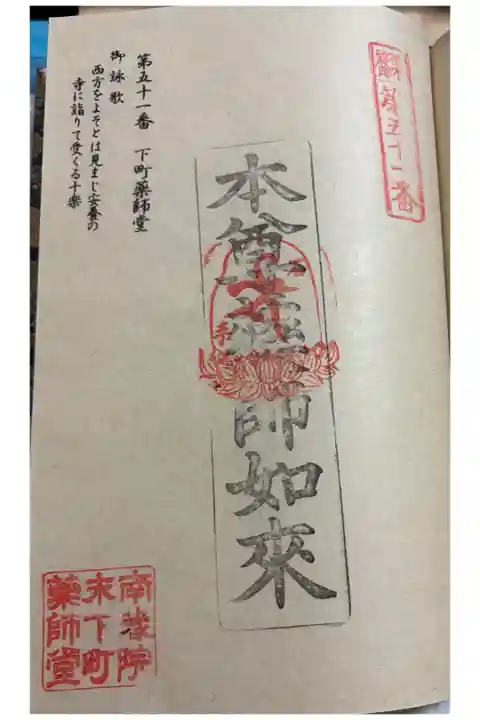 第五十一番
本尊藥師如來
第五十一番　下町藥師堂
御詠歌
西方をよそとは見まじ安養の
寺に詣りて受くる十楽
南蔵院
末下町
藥師堂